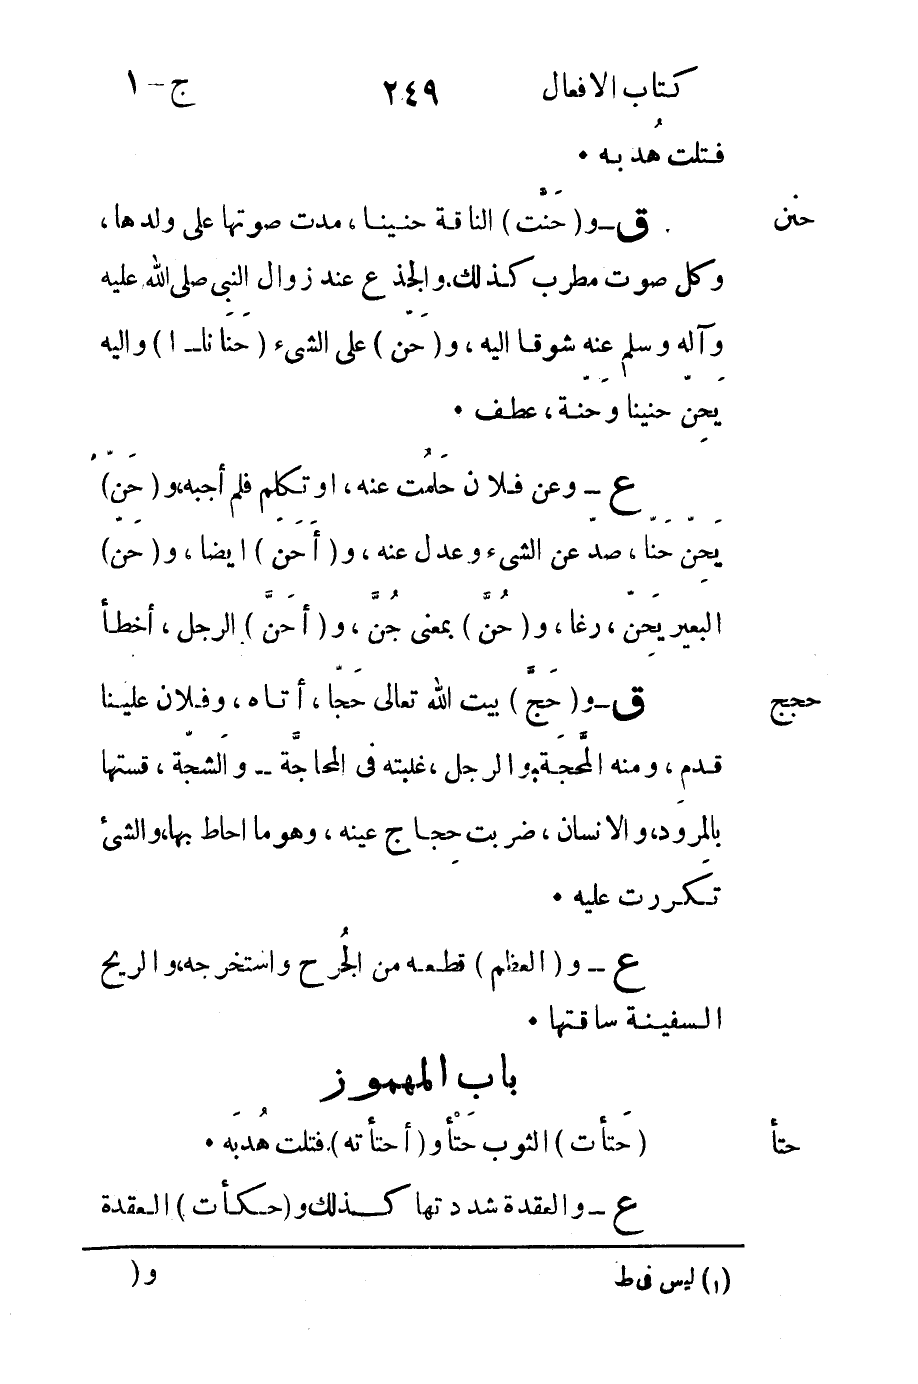 كتاب الافعال ٢٤٩ ج - ١
فتلت هُدبه •
حنن ق - و ( حَنّْت ) الناقة حنينا ، مدت صوتها على ولدها ،
وكل صوت مطرب كذلك. والجذع عند زوال النبى صلى الله عليه
وآله وسلم عنه شوقا اليه ، و ( حَنّ ) على الشىء ( حَنَانا - ١ ) واليه
يَحِنّ حنينا وحَنّة ، عطف •
ع - وعن فلان حَلُمَت عنه ، او تكلم فلم أجبه، و ( حَنّ )
يَحِنّ حَنّا ، صدّ عن الشىء وعدل عنه ، و ( أَحَنّ ) ايضا ، و ( حَنّ )
البعير يَحِنّ ، رغا ، و ( حُنَّ ) بمعنى جُنَّ ، و ( أحَنَّ ) الرجل ، أخطأ
حجج ق - و ( حَجَّ ) بيت الله تعالى حَجّا ، أتاه ، وفلان علينا
قدم ، ومنه المَحَجّة، والرجل ، غلبته فى المحاجَّة - والشجّة ، قستها
بالمِرْوَد، والانسان ، ضربت حِجاج عينه ، وهو ما احاط بها، والشئ
تكررت عليه •
ع - و ( العظم ) قطعه من الجُرح واستخرجه، والريح
السفينة ساقتها •
باب المهموز
حتأ ( حَتأت ) الثوب حَتْأً و ( أحتأته ). فتلت هُدبَه •
ع - والعقدة شددتها كذلك و ( حكأت ) العقدة
(١) ليس فى ط و (